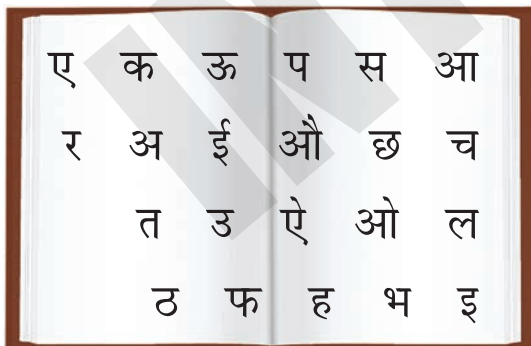 ए क ऊ प स आ
र अ ई औ छ च
त उ ऐ ओ ल
ठ फ ह भ इ